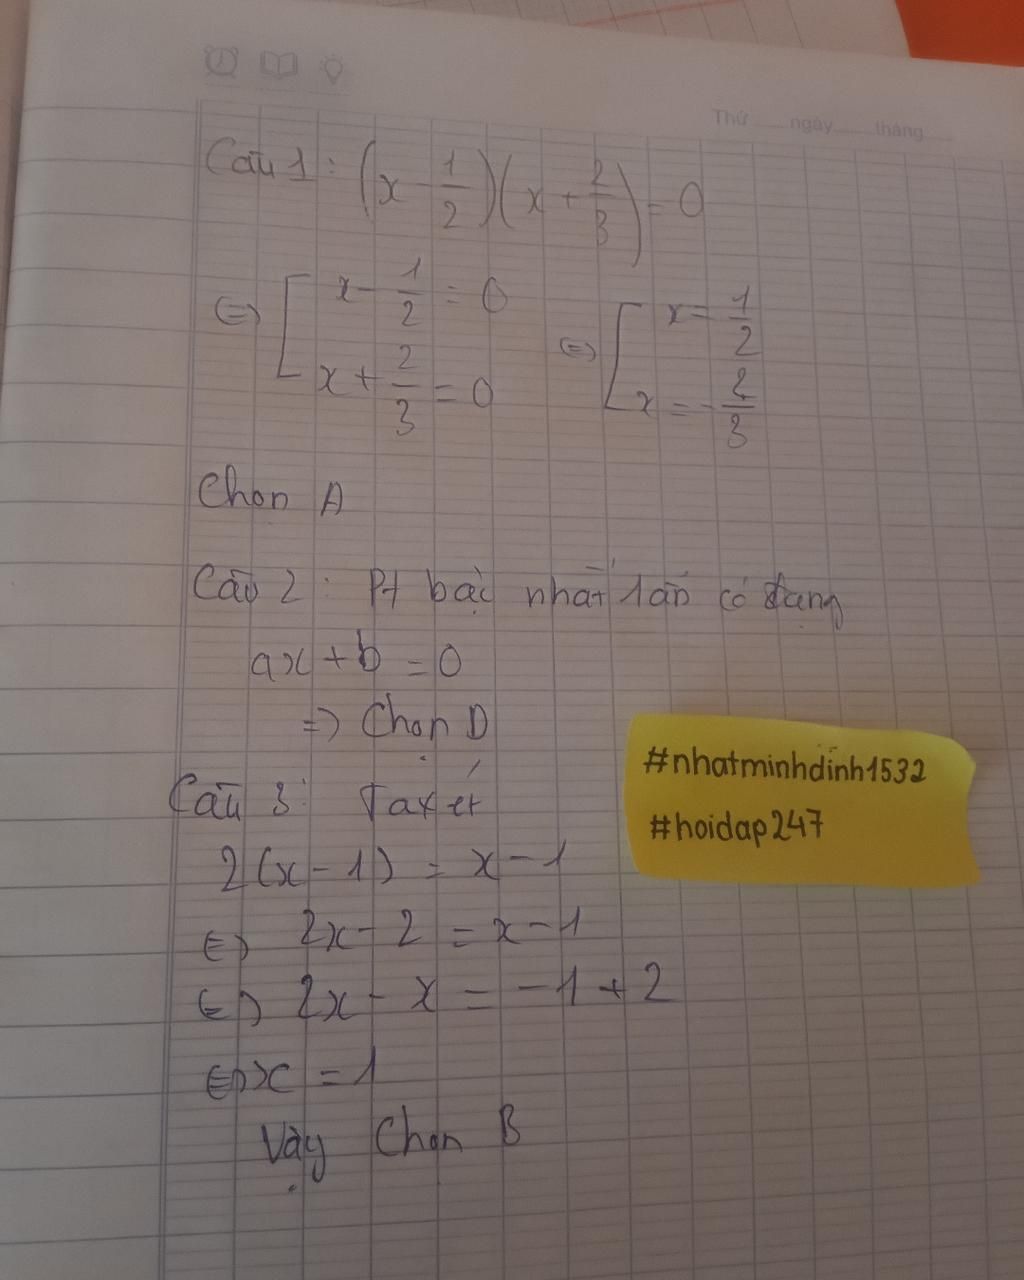 Thứ ngày tháng
Câu 1: (x - 1/2)(x + 2/3) = 0
⇔ [ x - 1/2 = 0 ⇔ [ x = 1/2
x + 2/3 = 0 x = -2/3
Chọn A
Câu 2: Pt bậc nhất 1 ẩn có dạng
ax + b = 0
=> Chọn D
Câu 3: Ta xét
2(x - 1) = x - 1
⇔ 2x - 2 = x - 1
⇔ 2x - x = -1 + 2
⇔ x = 1
Vậy Chọn B
#nhatminhdinh1532
#hoidap247